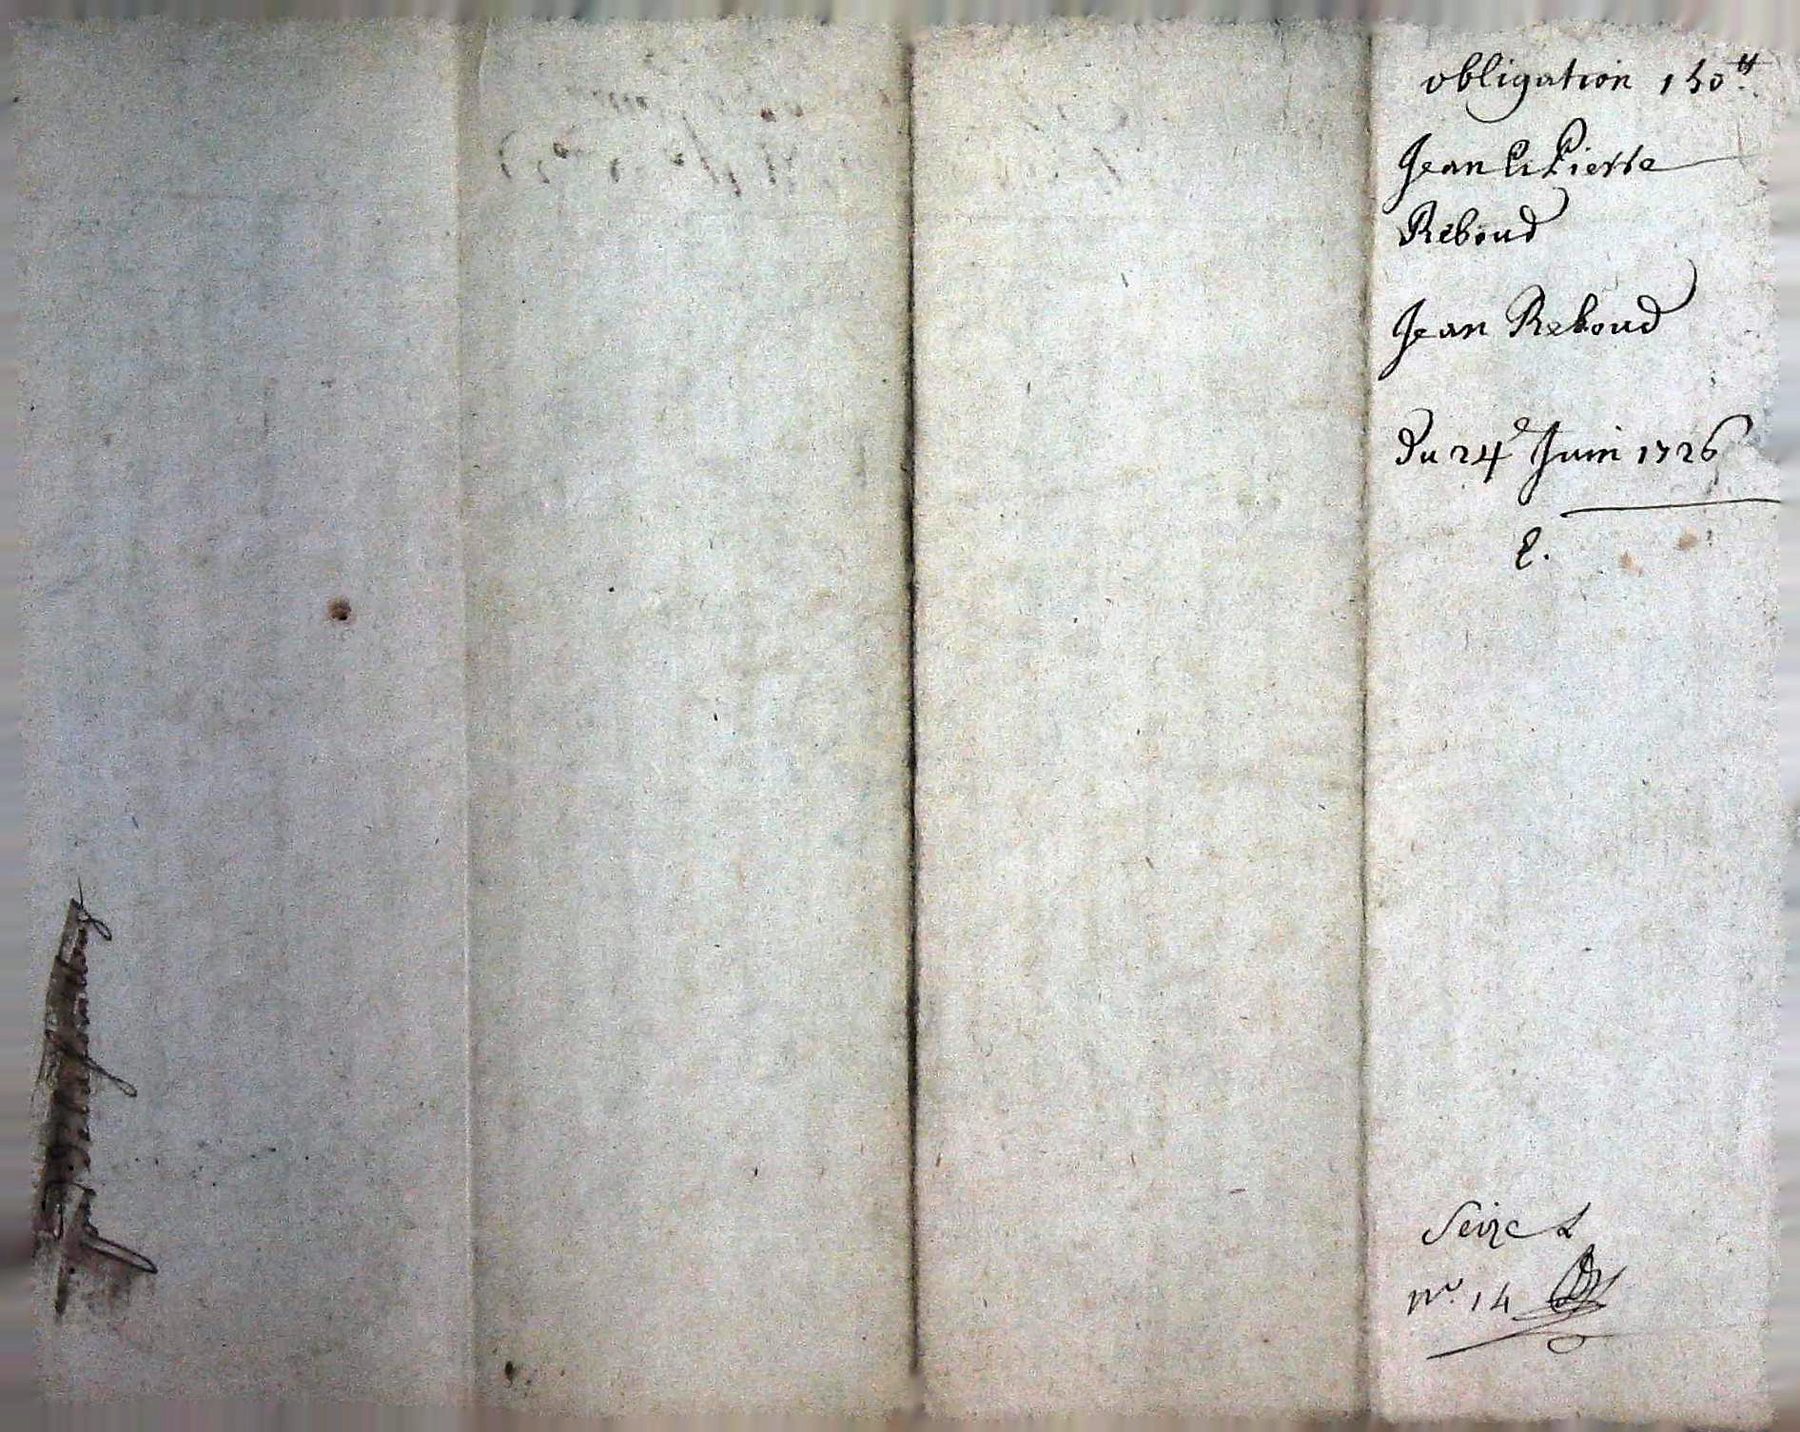 obligation 150 ₶
Jean & Pierre
Reboud
Jean Reboud
du 24e Juin 1726
E.
Seize
no. 14